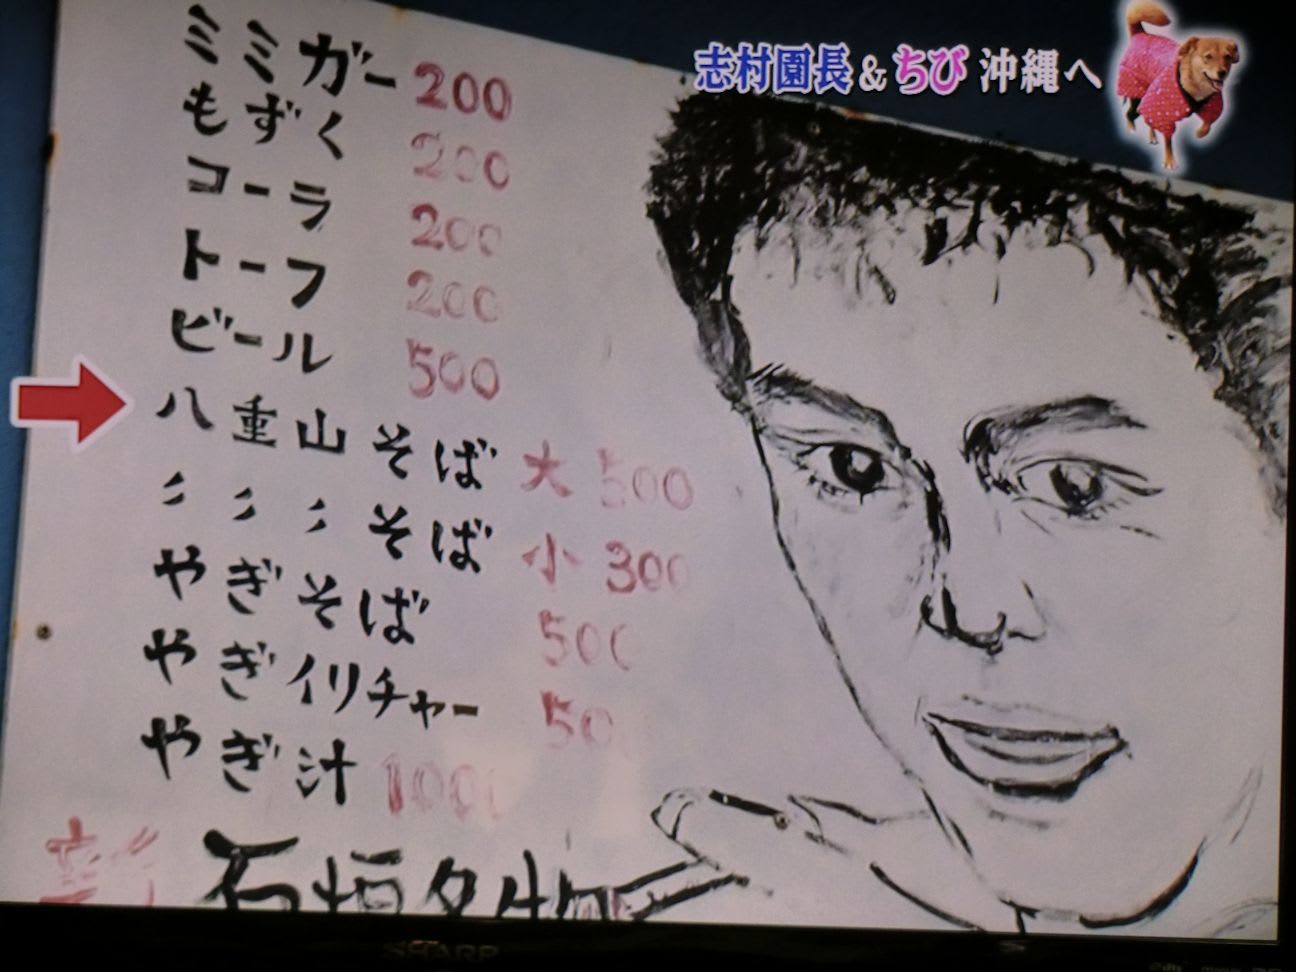 志村園長&ちび 沖縄へ
ミミガー 200
もずく 200
コーラ 200
トーフ 200
ビール 500
八重山そば 大 500
〃〃〃そば 小 300
やぎそば 500
やぎイリチャー 500
やぎ汁 1000
石垣名物
SHARP